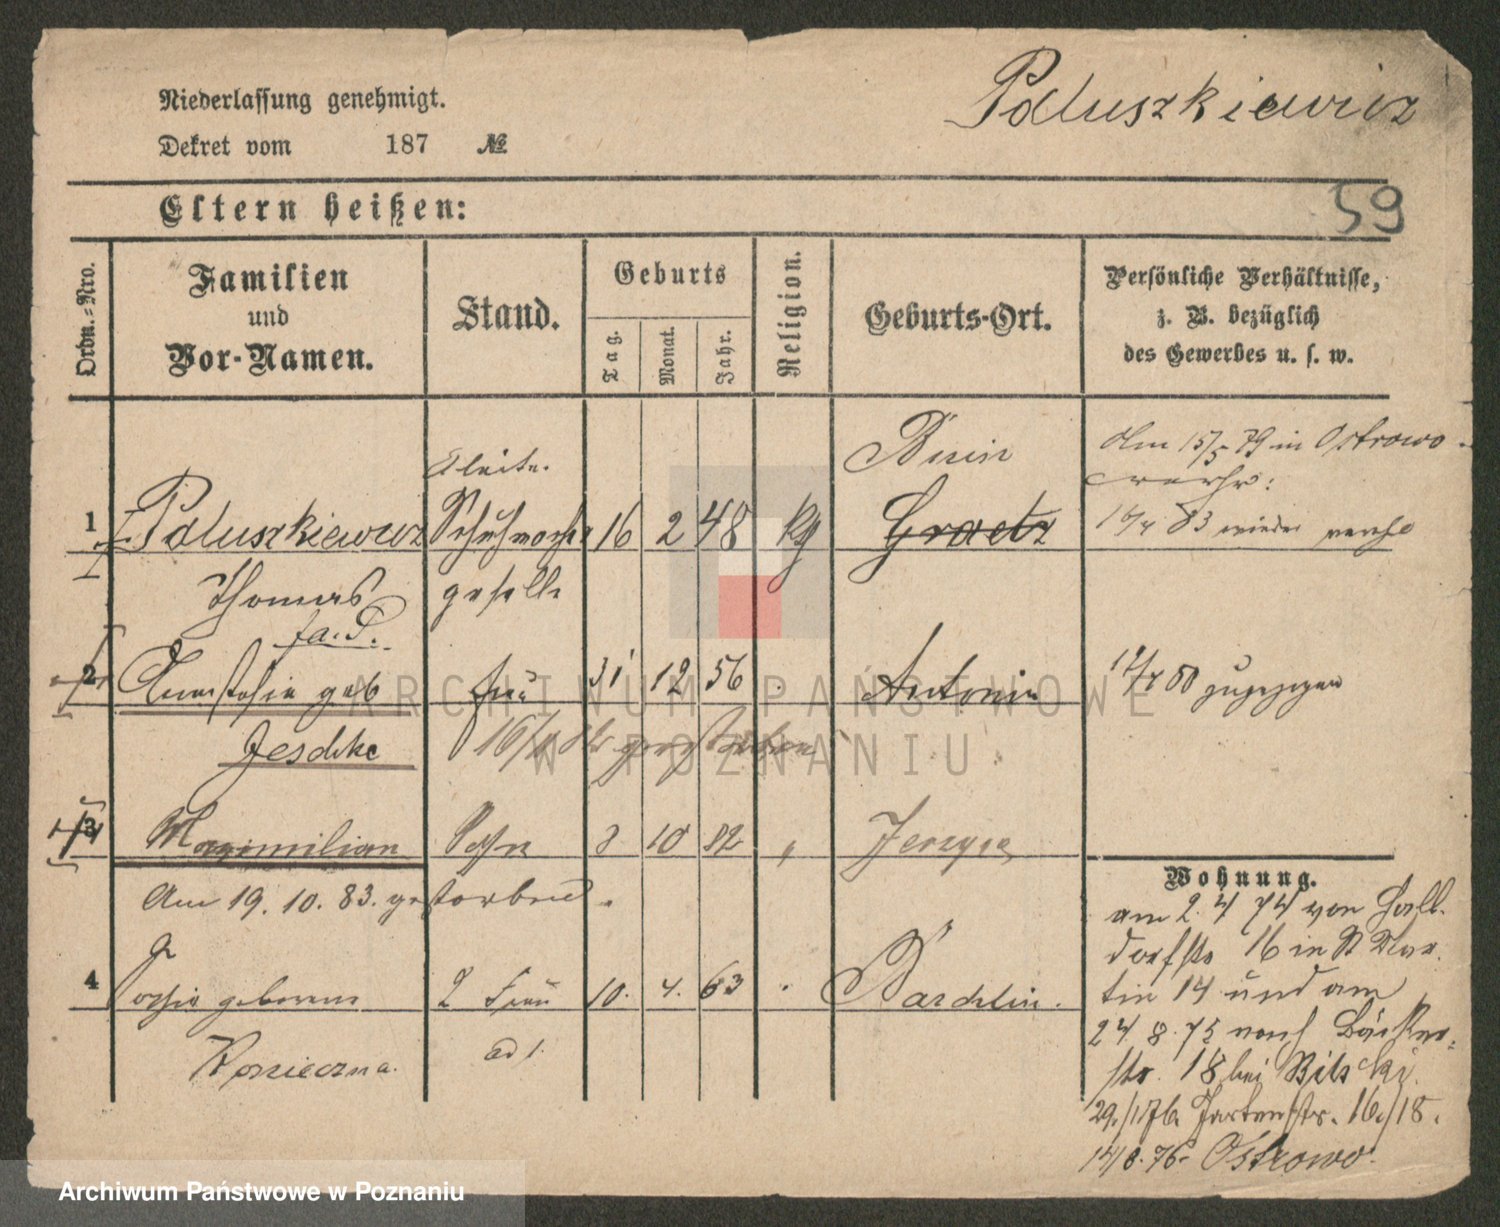 Paluszkiewicz
Niederlassung genehmigt.
Dekret vom 187 №
59
Eltern heißen:
Ordn.-Nro.
Familien
und
Vor-Namen.
Stand.
Geburts
Tag.
Monat.
Jahr.
Religion.
Geburts-Ort.
Persönliche Verhältnisse,
z. B. bezüglich
des Gewerbes u. s. w.
1 Paluszkiewicz
Thomas
Schuhmacher
geselle
16 2 48 kg
Bnin
Graetz
Am 15/5 79 in Ostrowo
verhr:
16/4 83 wieder verhr
fa. P.
2 Anastasia geb
Jeschke
Frau
31 12 56
Antonin
gestorben
zugezogen
3 Maximilian
Sohn
8 10 82 "
Jerzyce
Am 19.10.83. gestorben.
4
geborene
Konieczna.
2 Frau
ad 1.
10. 4. 63
Wohnung.
am 2.4 74 von Hall-
dorfstr 16 in St Mar-
tin 14 und am
24 8.75 nach Bäcker-
str. 18 bei Bilski.
29./1 76. Gartenstr. 16./18.
14/8.76. Ostrowo.
ARCHIWUM PAŃSTWOWE
W POZNANIU
Archiwum Państwowe w Poznaniu